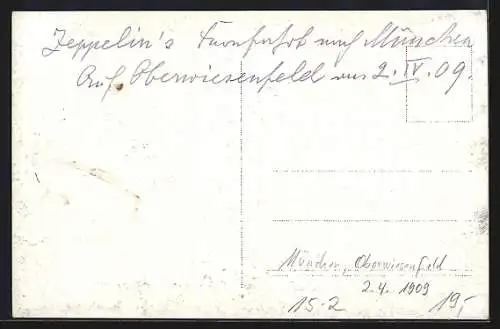 Zeppelin's Fernfahrt nach München
Auf Oberwiesenfeld am 2. IV. 09.
München, Oberwiesenfeld
2.4. 1909
15-2 19,-